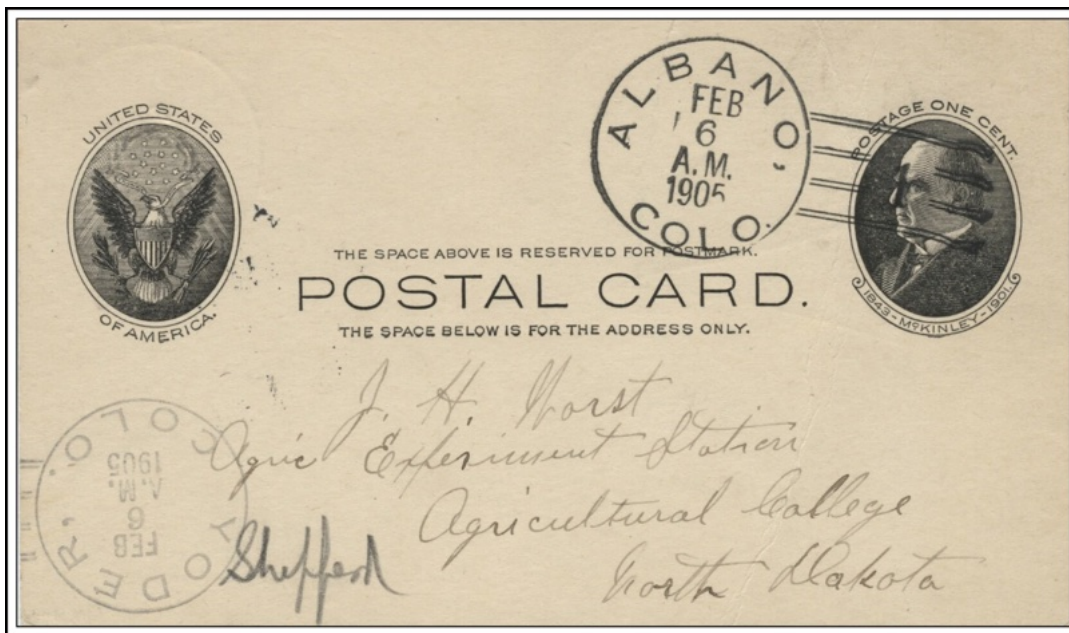 UNITED STATES
OF AMERICA.
ALBANO, COLO.
FEB
6
A.M.
1905
POSTAGE ONE CENT.
1843-McKINLEY-1901.
THE SPACE ABOVE IS RESERVED FOR POSTMARK.
POSTAL CARD.
THE SPACE BELOW IS FOR THE ADDRESS ONLY.
J. H. Worst
Agric Experiment Station
Agricultural College
North Dakota
Shepperd
YODER, COLO.
FEB
6
A.M.
1905